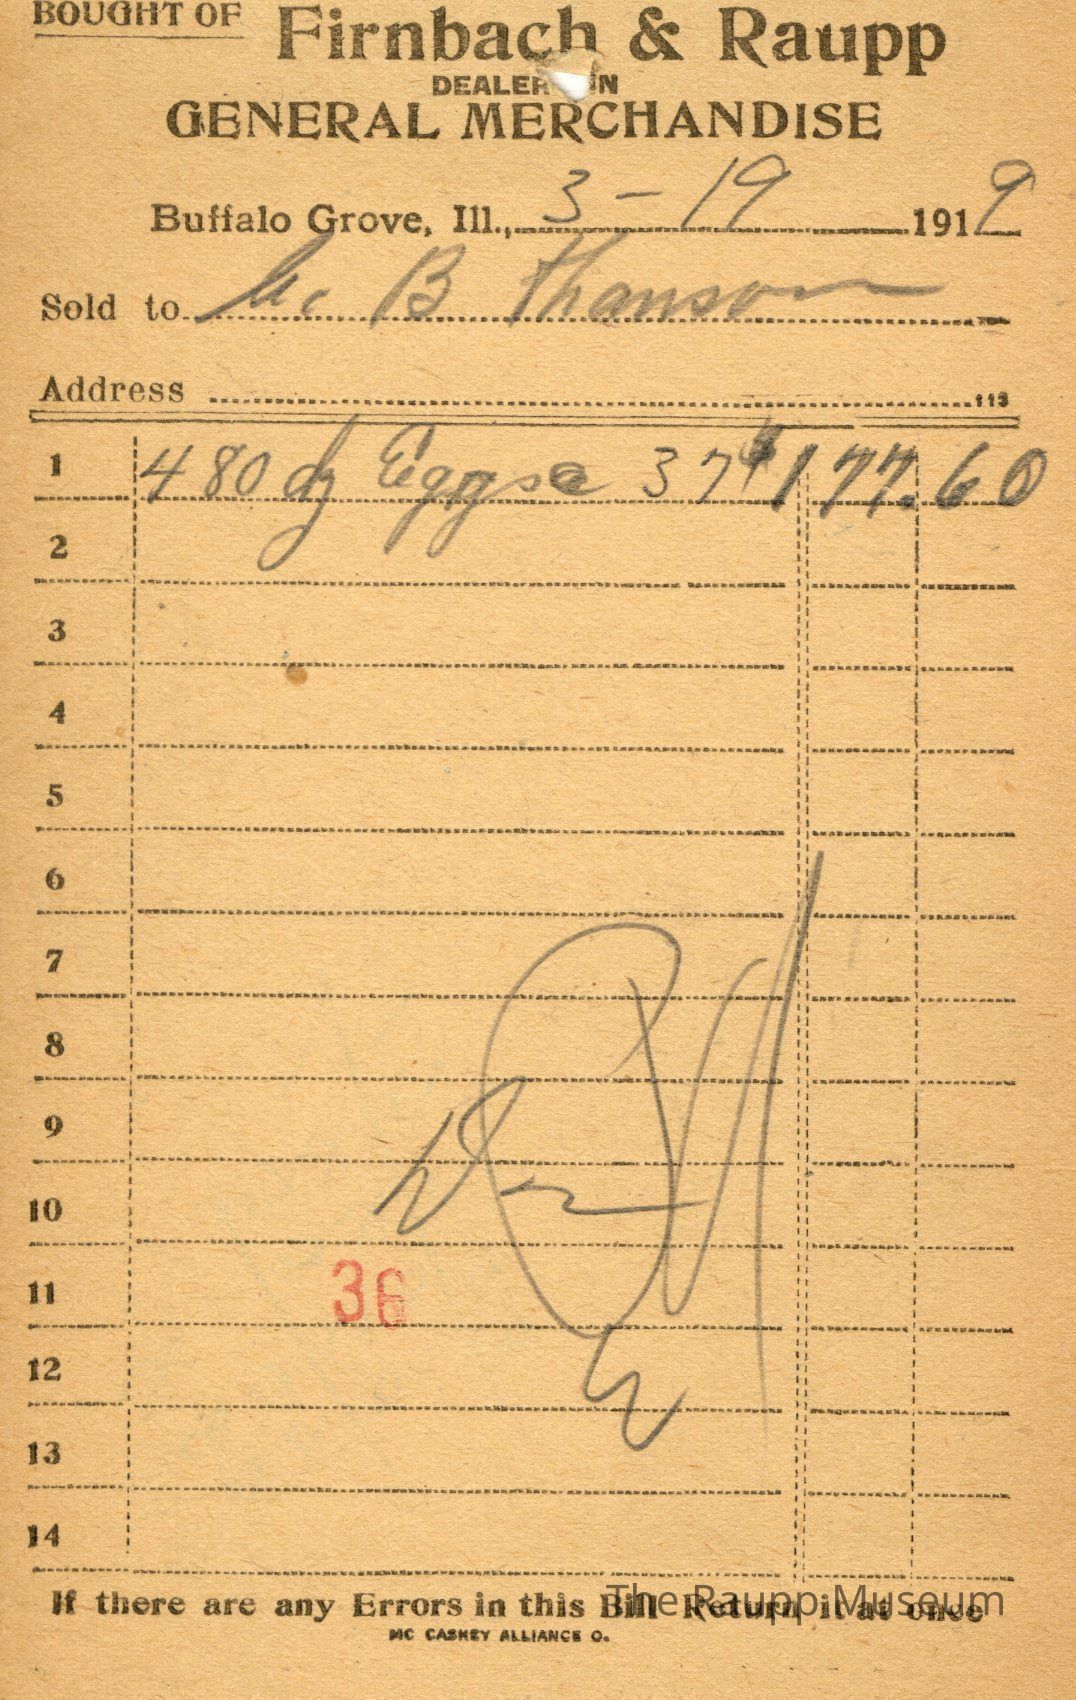 BOUGHT OF
Firnbach & Raupp
DEALER IN
GENERAL MERCHANDISE
Buffalo Grove, Ill., 3-19 1919
Sold to B Thanson
Address
113
1 480 dz Eggs @ 37¢ 177.60
2
3
4
5
6
7
8
9
10
11
36
12
13
14
If there are any Errors in this Bill Return it at once
The Raupp Museum
MC CASKEY ALLIANCE O.